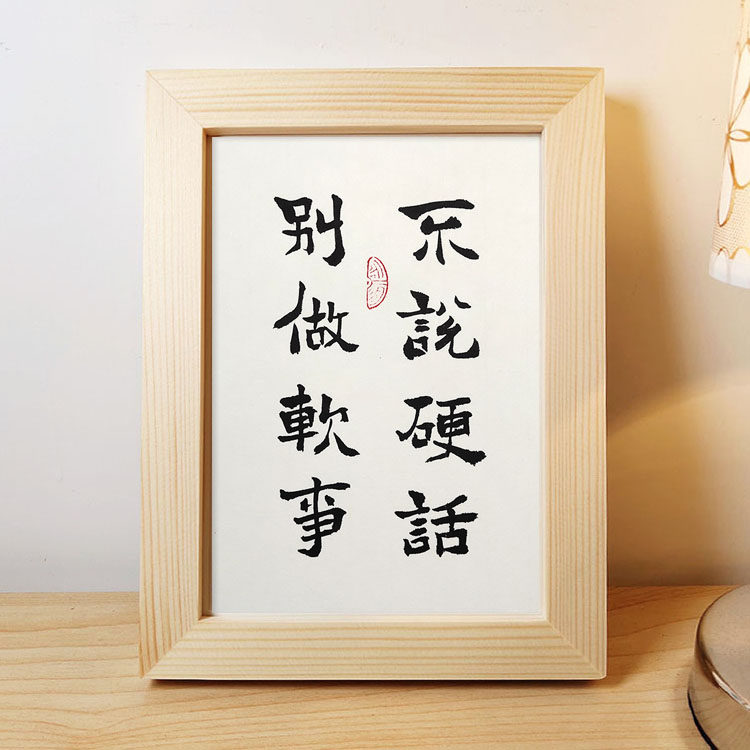 不說硬話
別做軟事